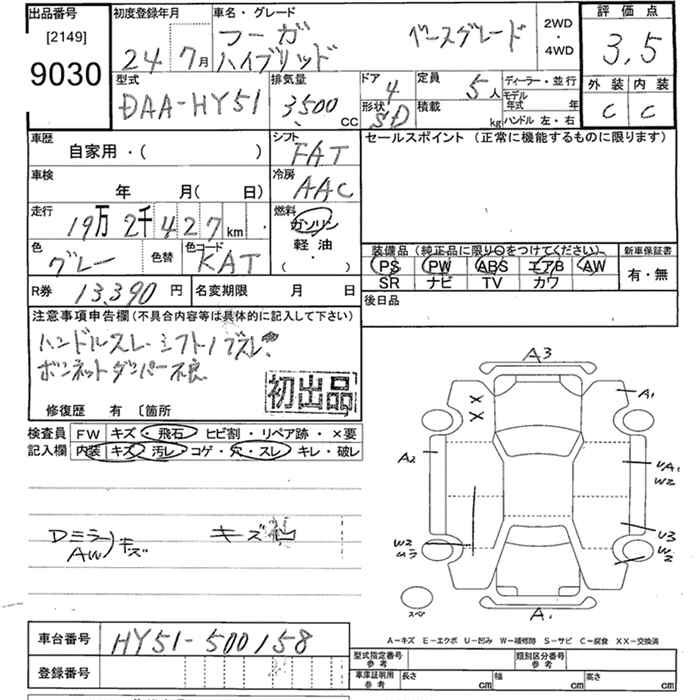 出品番号 初度登録年月 車名・グレード 評価点
[2149] フーガ ベースグレード 2WD
9030 24 7月 ハイブリッド ・ 4WD 3,5
型式 排気量 ドア 4 定員 5人 ディーラー・並行 外装 内装
DAA-HY51 3500 CC 形状 SD 積載 kg モデル年式 年 C C
ハンドル 左・右
車歴 シフト セールスポイント (正常に機能するものに限ります)
自家用・( ) FAT
車検 冷房
年 月( 日) AAC
走行 燃料
19万 2千 427 km ガソリン
軽油
色 色替 色コード ( ・ )
グレー KAT
装備品 (純正品に限り○をつけてください) 新車保証書
PS PW ABS エアB AW 有・無
SR ナビ TV カワ
R券 13,390円 名変期限 月 日 後日品
注意事項申告欄 (不具合内容等は具体的に記入して下さい)
ハンドルスレ シフトノブスレ
ボンネットダンパー不良
初出品
修復歴 有 〔箇所
検査員 FW キズ・飛石・ヒビ割・リペア跡・×要
記入欄 内装 キズ・汚レ・コゲ・穴・スレ・キレ・破レ
Dミラー キズ
AW キズ
A3
A1
A2
UA1
W2
W2
U3
W2
スペア
A1
A-キズ E-エクボ U-凹み W-補修跡 S-サビ C-腐食 XX-交換済
車台番号 HY51-500158
登録番号
型式指定番号 参考 類別区分番号 参考
車庫証明用 参考 長さ cm 幅 cm 高さ cm